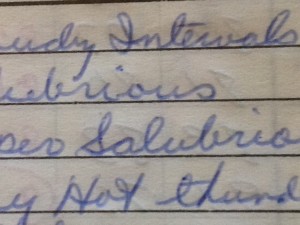 oudy Intervals
lubrious
per Salubrio
y Hot thund